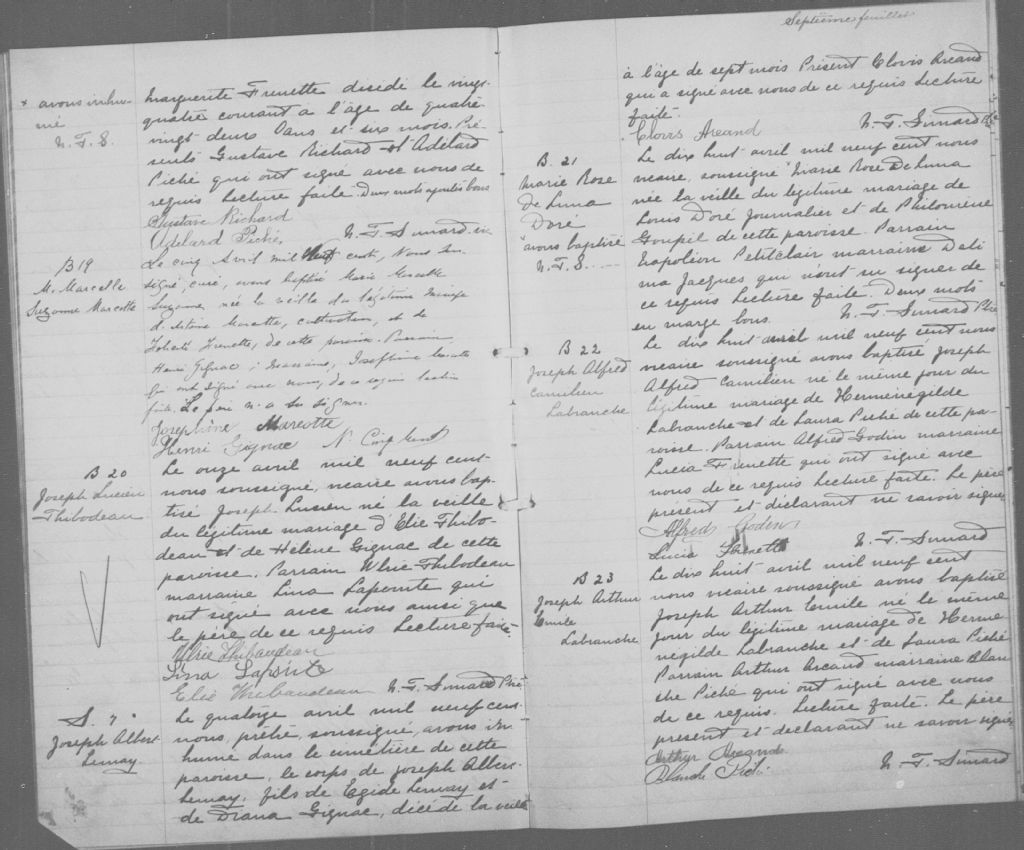 Septième feuillet
x avons inhu-
mé
N. T. S.
Marguerite Frenette décédé le vingt
quatre courant à l'âge de quatre
vingt deux ans et six mois. Pré-
sents Gustave Richard et Adélard
Piché qui ont signé avec nous de ce
requis Lecture faite. Deux mots ajoutés bons
Gustave Richard
Adélard Piché, N. T. Simard vic
B 19
M. Marcelle
Suzanne Marcotte
Le cinq Avril mil neuf cent, Nous sous
signé, curé, avons baptisé Marie Marcelle
Suzanne, née la veille du légitime mariage
d'Antoine Marcotte, cultivateur, et de
Frenette, de cette paroisse. Parrain
Henri Gignac; Marraine, Joséphine Marcotte
qui ont signé avec nous, de ce requis lecture
faite. Le père n'a su signer.
Joséphine Marcotte
Henri Gignac
B 20
Joseph Lucien
Thibodeau
Le onze avril mil neuf cent
nous soussigné, vicaire avons bap-
tisé Joseph Lucien né la veille
du légitime mariage d'Elie Thibo-
deau et de Hélène Gignac de cette
paroisse. Parrain Ulric Thibodeau
marraine Lina Lapointe qui
ont signé avec nous ainsi que
le père de ce requis Lecture faite
Ulric Thibaudeau
Lina Lapointe
Elie Thibaudeau N. T. Simard Ptre
S. 7
Joseph Albert
Lemay.
Le quatorze avril mil neuf cent
nous, prêtre, soussigné, avons in
humé dans le cimetière de cette
paroisse, le corps de Joseph Albert
Lemay, fils de Egide Lemay et
de Diana Gignac, décédé la veille
à l'âge de sept mois Présent Clovis Arcand
qui a signé avec nous de ce requis Lecture
faite.
Clovis Arcand N. T. Simard Ptre
B. 21
Marie Rose
De Lima
Doré
x avons baptisé
N. T. S.
Le dix huit avril mil neuf cent nous
vicaire, soussigné x Marie Rose De Lima
née la veille du légitime mariage de
Louis Doré Journalier et de Philomène
Goupil de cette paroisse. Parrain
Napoléon Petitclair marraine Deli
ma Jacques qui n'ont su signer de
ce requis Lecture faite. Deux mots
en marge bons. N. T. Simard Ptre
B 22
Joseph Alfred
Camilien
Labranche
Le dix huit avril mil neuf cent nous
vicaire soussigné avons baptisé Joseph
Alfred Camilien né le même jour du
légitime mariage de Herménégilde
Labranche et de Laura Piché de cette pa-
roisse. Parrain Alfred Godin marraine
Lucia Frenette qui ont signé avec
nous de ce requis Lecture faite. Le père
présent et déclarant ne savoir signer
Alfred Goden
Lucia Frenette N. T. Simard
B 23
Joseph Arthur
Emile
Labranche
Le dix huit avril mil neuf cent
nous vicaire soussigné avons baptisé
Joseph Arthur Emile né le même
jour du légitime mariage de Herme
negilde Labranche et de Laura Piché
Parrain Arthur Arcand marraine Blan
che Piché qui ont signé avec nous
de ce requis. Lecture faite. Le père
présent et déclarant ne savoir signer
Arthur Arcand
Blanche Piché N. T. Simard